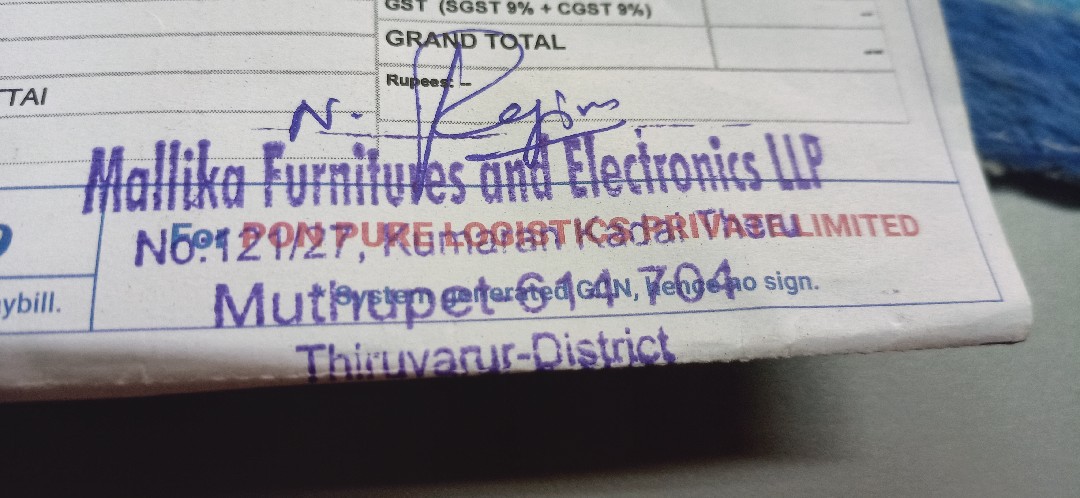 GST (SGST 9% + CGST 9%)
–
GRAND TOTAL
–
Rupees:
TTAI
N.
Mallika Furnitures and Electronics LLP
For PON PURE LOGISTICS PRIVATE LIMITED
No:121/27, Kumaran Kadai Theru
* System generated GCN, hence no sign.
Muthupet-614 704
ybill.
Thiruvarur-District